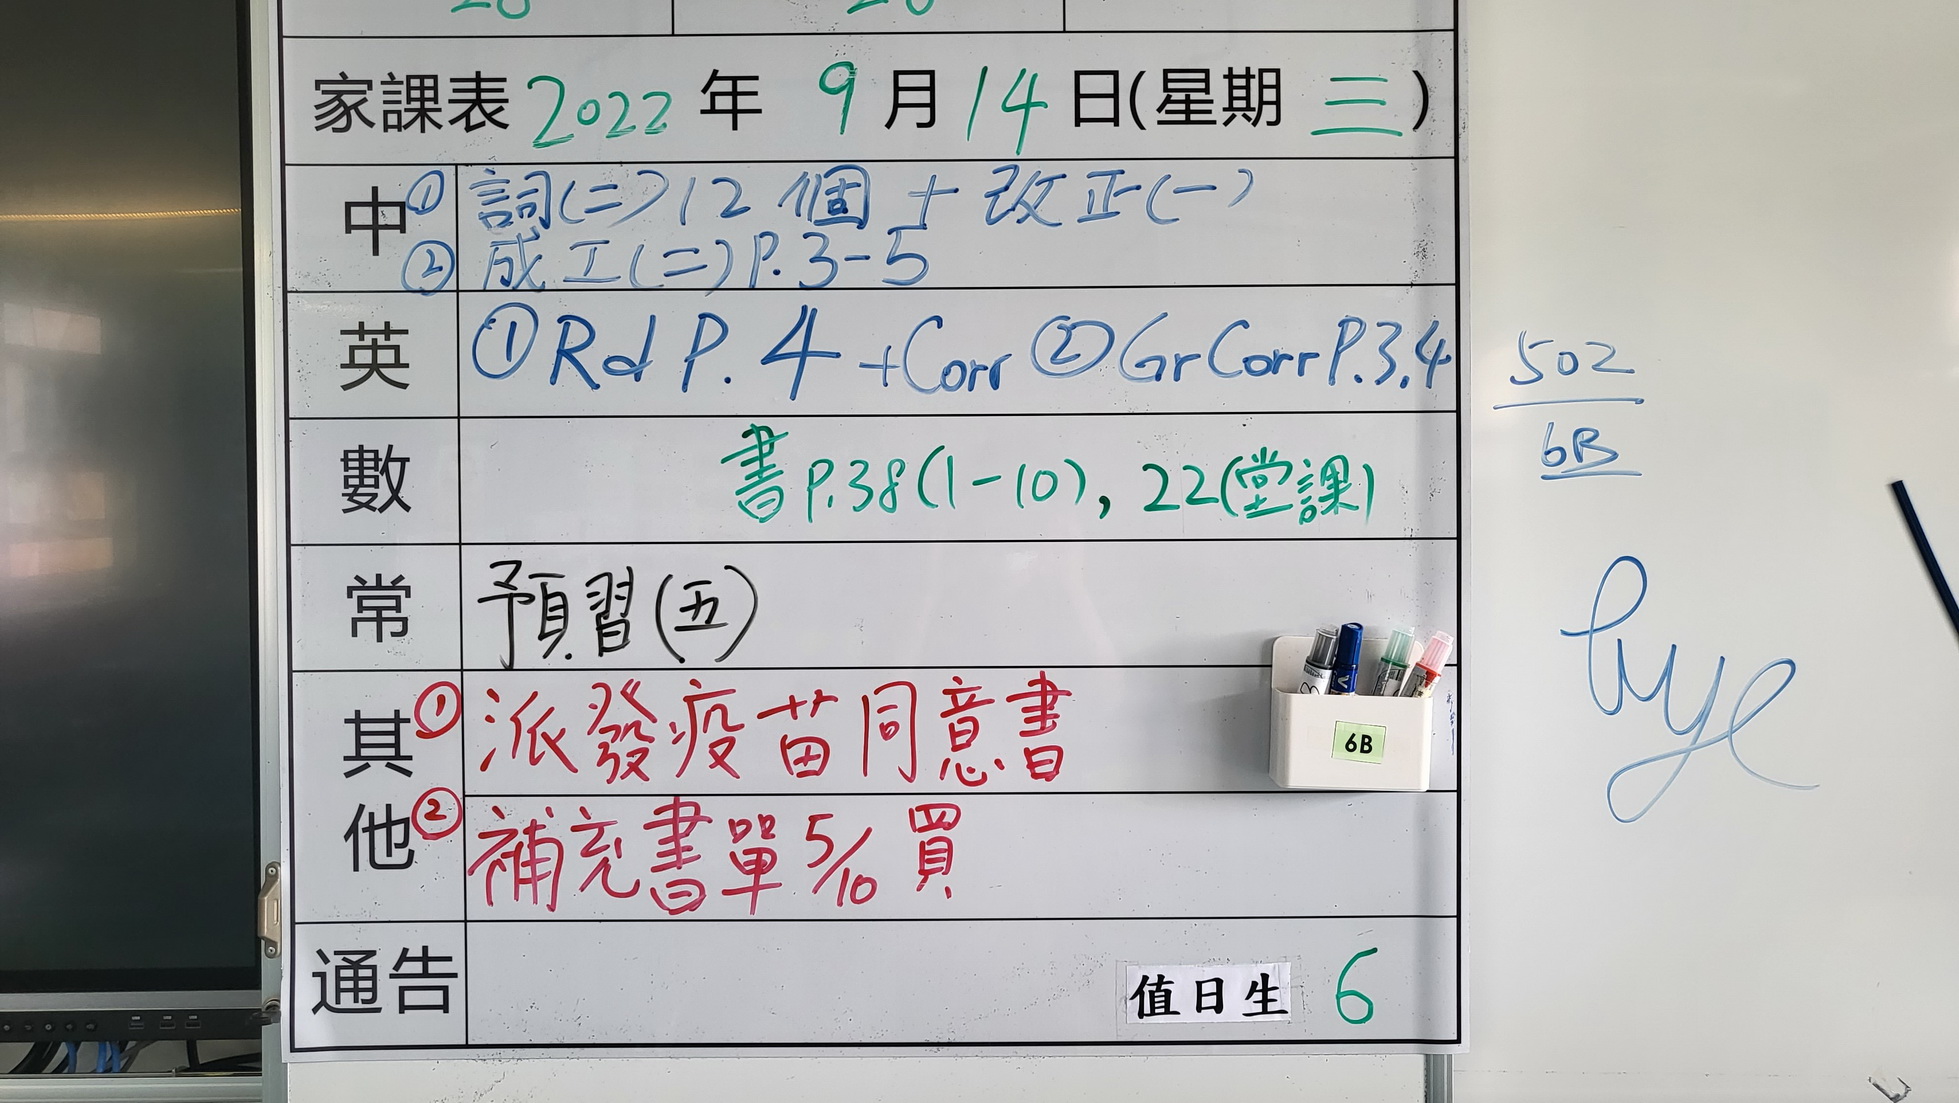 家課表 2022 年 9 月 14 日(星期 三)
中 ① 詞(二)12個 + 改正(一)
② 成工(二)P.3-5
英 ①Rd P.4 +Corr ②GrCorrP.3.4
數 書P.38(1-10), 22(堂課)
常 預習(五)
其他 ① 派發疫苗同意書
② 補充書單5/10買
通告
值日生 6
6B
502
6B